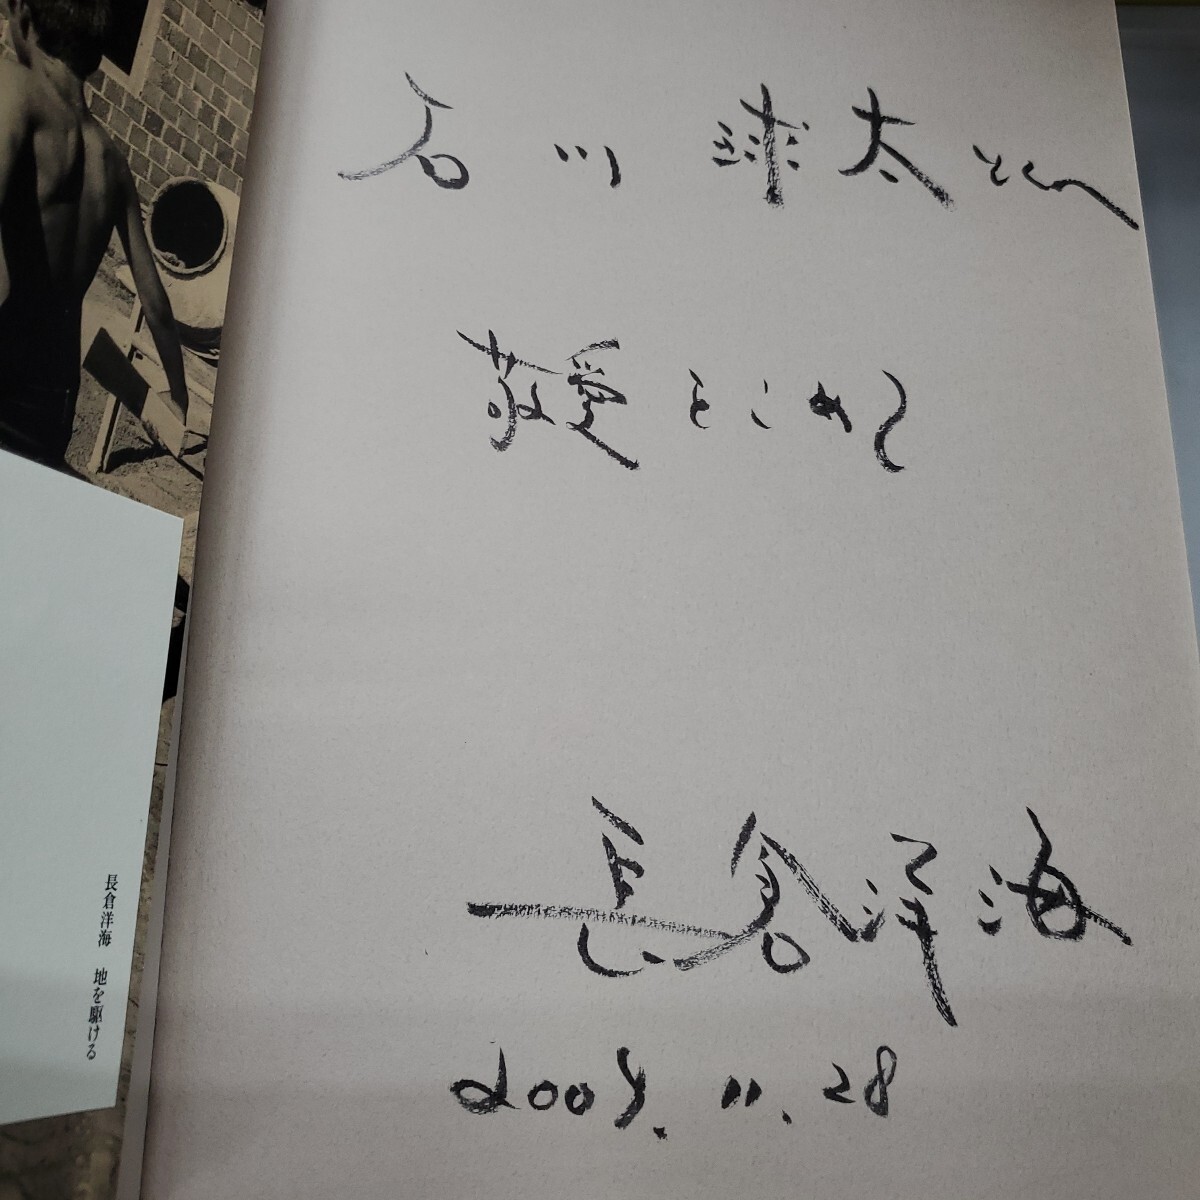 石川 球太さんへ
敬愛をこめて
長倉洋海
2009.11.28
長倉洋海 地を駆ける